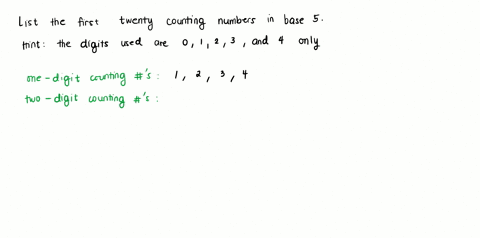 List the first twenty counting numbers in base 5.
Hint: the digits used are 0, 1, 2, 3, and 4 only
one-digit counting #'s: 1, 2, 3, 4
two-digit counting #'s: